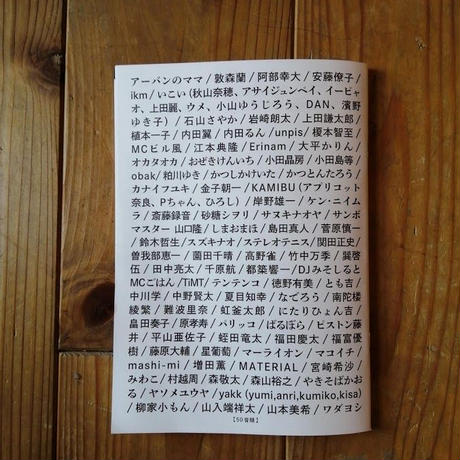 アーバンのママ / 敦森蘭 / 阿部幸大 / 安藤僚子 /
ikm / いこい（秋山奈穂、アサイジュンペイ、イーピャ
オ、上田麗、ウメ、小山ゆうじろう、DAN、濱野
ゆき子）/ 石山さやか / 岩崎朗太 / 上田謙太郎 /
植本一子 / 内田翼 / 内田るん / unpis / 榎本智至 /
MCビル風 / 江本典隆 / Erinam / 大平かりん /
オカタオカ / おぜきけんいち / 小田晶房 / 小田島等
obak / 粕川ゆき / かつしかけいた / かつとんたろう /
カナイフユキ / 金子朝一 / KAMIBU（アプリコット
奈良、Pちゃん、ひろし）/ 岸野雄一 / ケン・ニイム
ラ / 斎藤録音 / 砂糖シヲリ / サヌキナオヤ / サンボ
マスター 山口隆 / しまおまほ / 島田真人 / 菅原慎一
/ 鈴木哲生 / スズキナオ / ステレオテニス / 関田正史 /
曽我部恵一 / 薗田千晴 / 高野雀 / 竹中万季 / 巽啓
伍 / 田中亮太 / 千原航 / 都築響一 / DJみそしると
MCごはん / TiMT / テンテンコ / 徳野有美 / とも吉 /
中川学 / 中野賢太 / 夏目知幸 / なごろう / 南陀楼
綾繁 / 難波里奈 / 虹釜太郎 / にたりひょん吉 /
畠田奏子 / 原孝寿 / パリッコ / ぱるぽら / ピストン藤
井 / 平山亜佐子 / 蛭田竜太 / 福田慶太 / 福富優
樹 / 藤原大輔 / 星葡萄 / マーライオン / マコイチ /
mashi-mi / 増田薫 / MATERIAL / 宮崎希沙 /
みわこ / 村越周 / 森敬太 / 森山裕之 / やきそばかお
る / ヤソメユウヤ / yakk (yumi,anri,kumiko,kisa)
/ 柳家小もん / 山入端祥太 / 山本美希 / ワダヨシ
【50音順】